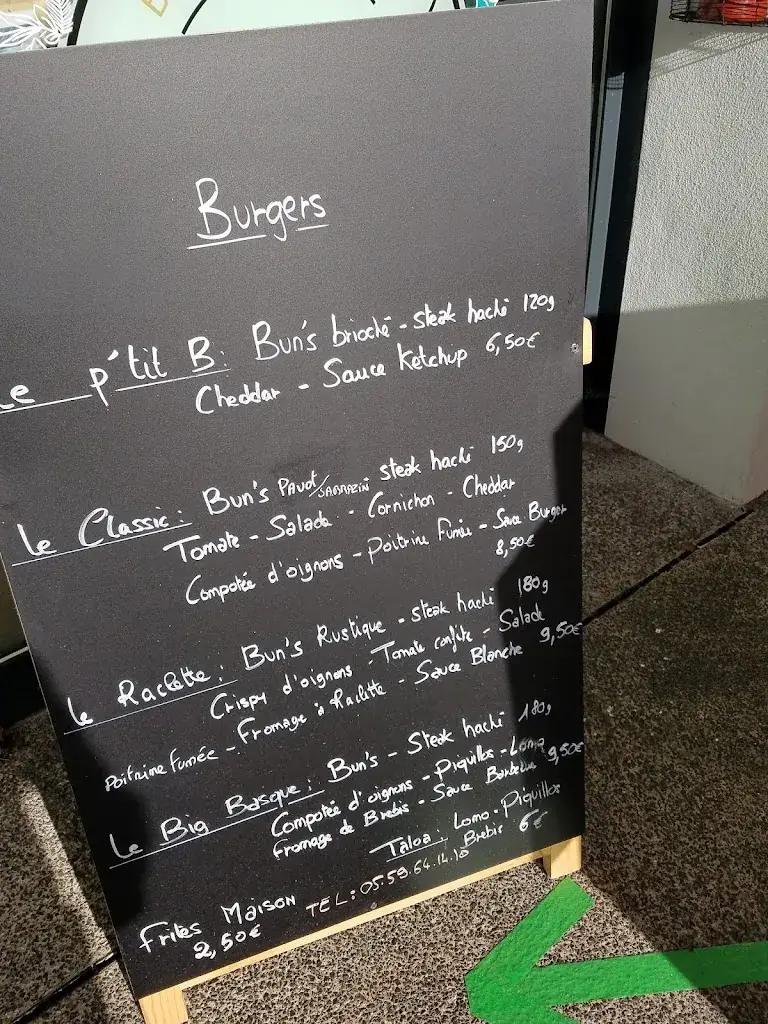 Burgers
Le p'tit B: Bun's brioché - steak haché 120g
Cheddar - Sauce Ketchup 6,50€
Le Classic: Bun's Pavot/SARRAZIN steak haché 150g
Tomate - Salade - Cornichon - Cheddar
Compotée d'oignons - Poitrine Fumée - Sauce Burger
8,50€
Le Raclette: Bun's Rustique - steak haché 180g
Crispy d'oignons - Tomate confite - Salade
Poitrine fumée - Fromage à Raclette - Sauce Blanche 9,50€
Le Big Basque: Bun's - Steak haché 180g
Compotée d'oignons - Piquillos - Lomo
Fromage de Brebis - Sauce Barbecue 9,50€
Taloa: Lomo - Piquillos
Brebis 6€
Frites MAISON TEL: 05.59.64.14.10
2,50€